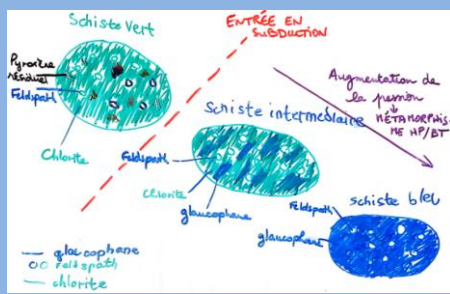 Schiste vert
ENTRÉE EN
SUBDUCTION
Pyroxène
résiduel
Feldspath
Chlorite
Augmentation de
la pression
↓
MÉTAMORPHIS-
ME HP/BT
Schiste intermédiaire
Feldspath
Chlorite
glaucophane
schiste bleu
Feldspath
glaucophane
glaucophane
Feldspath
chlorite